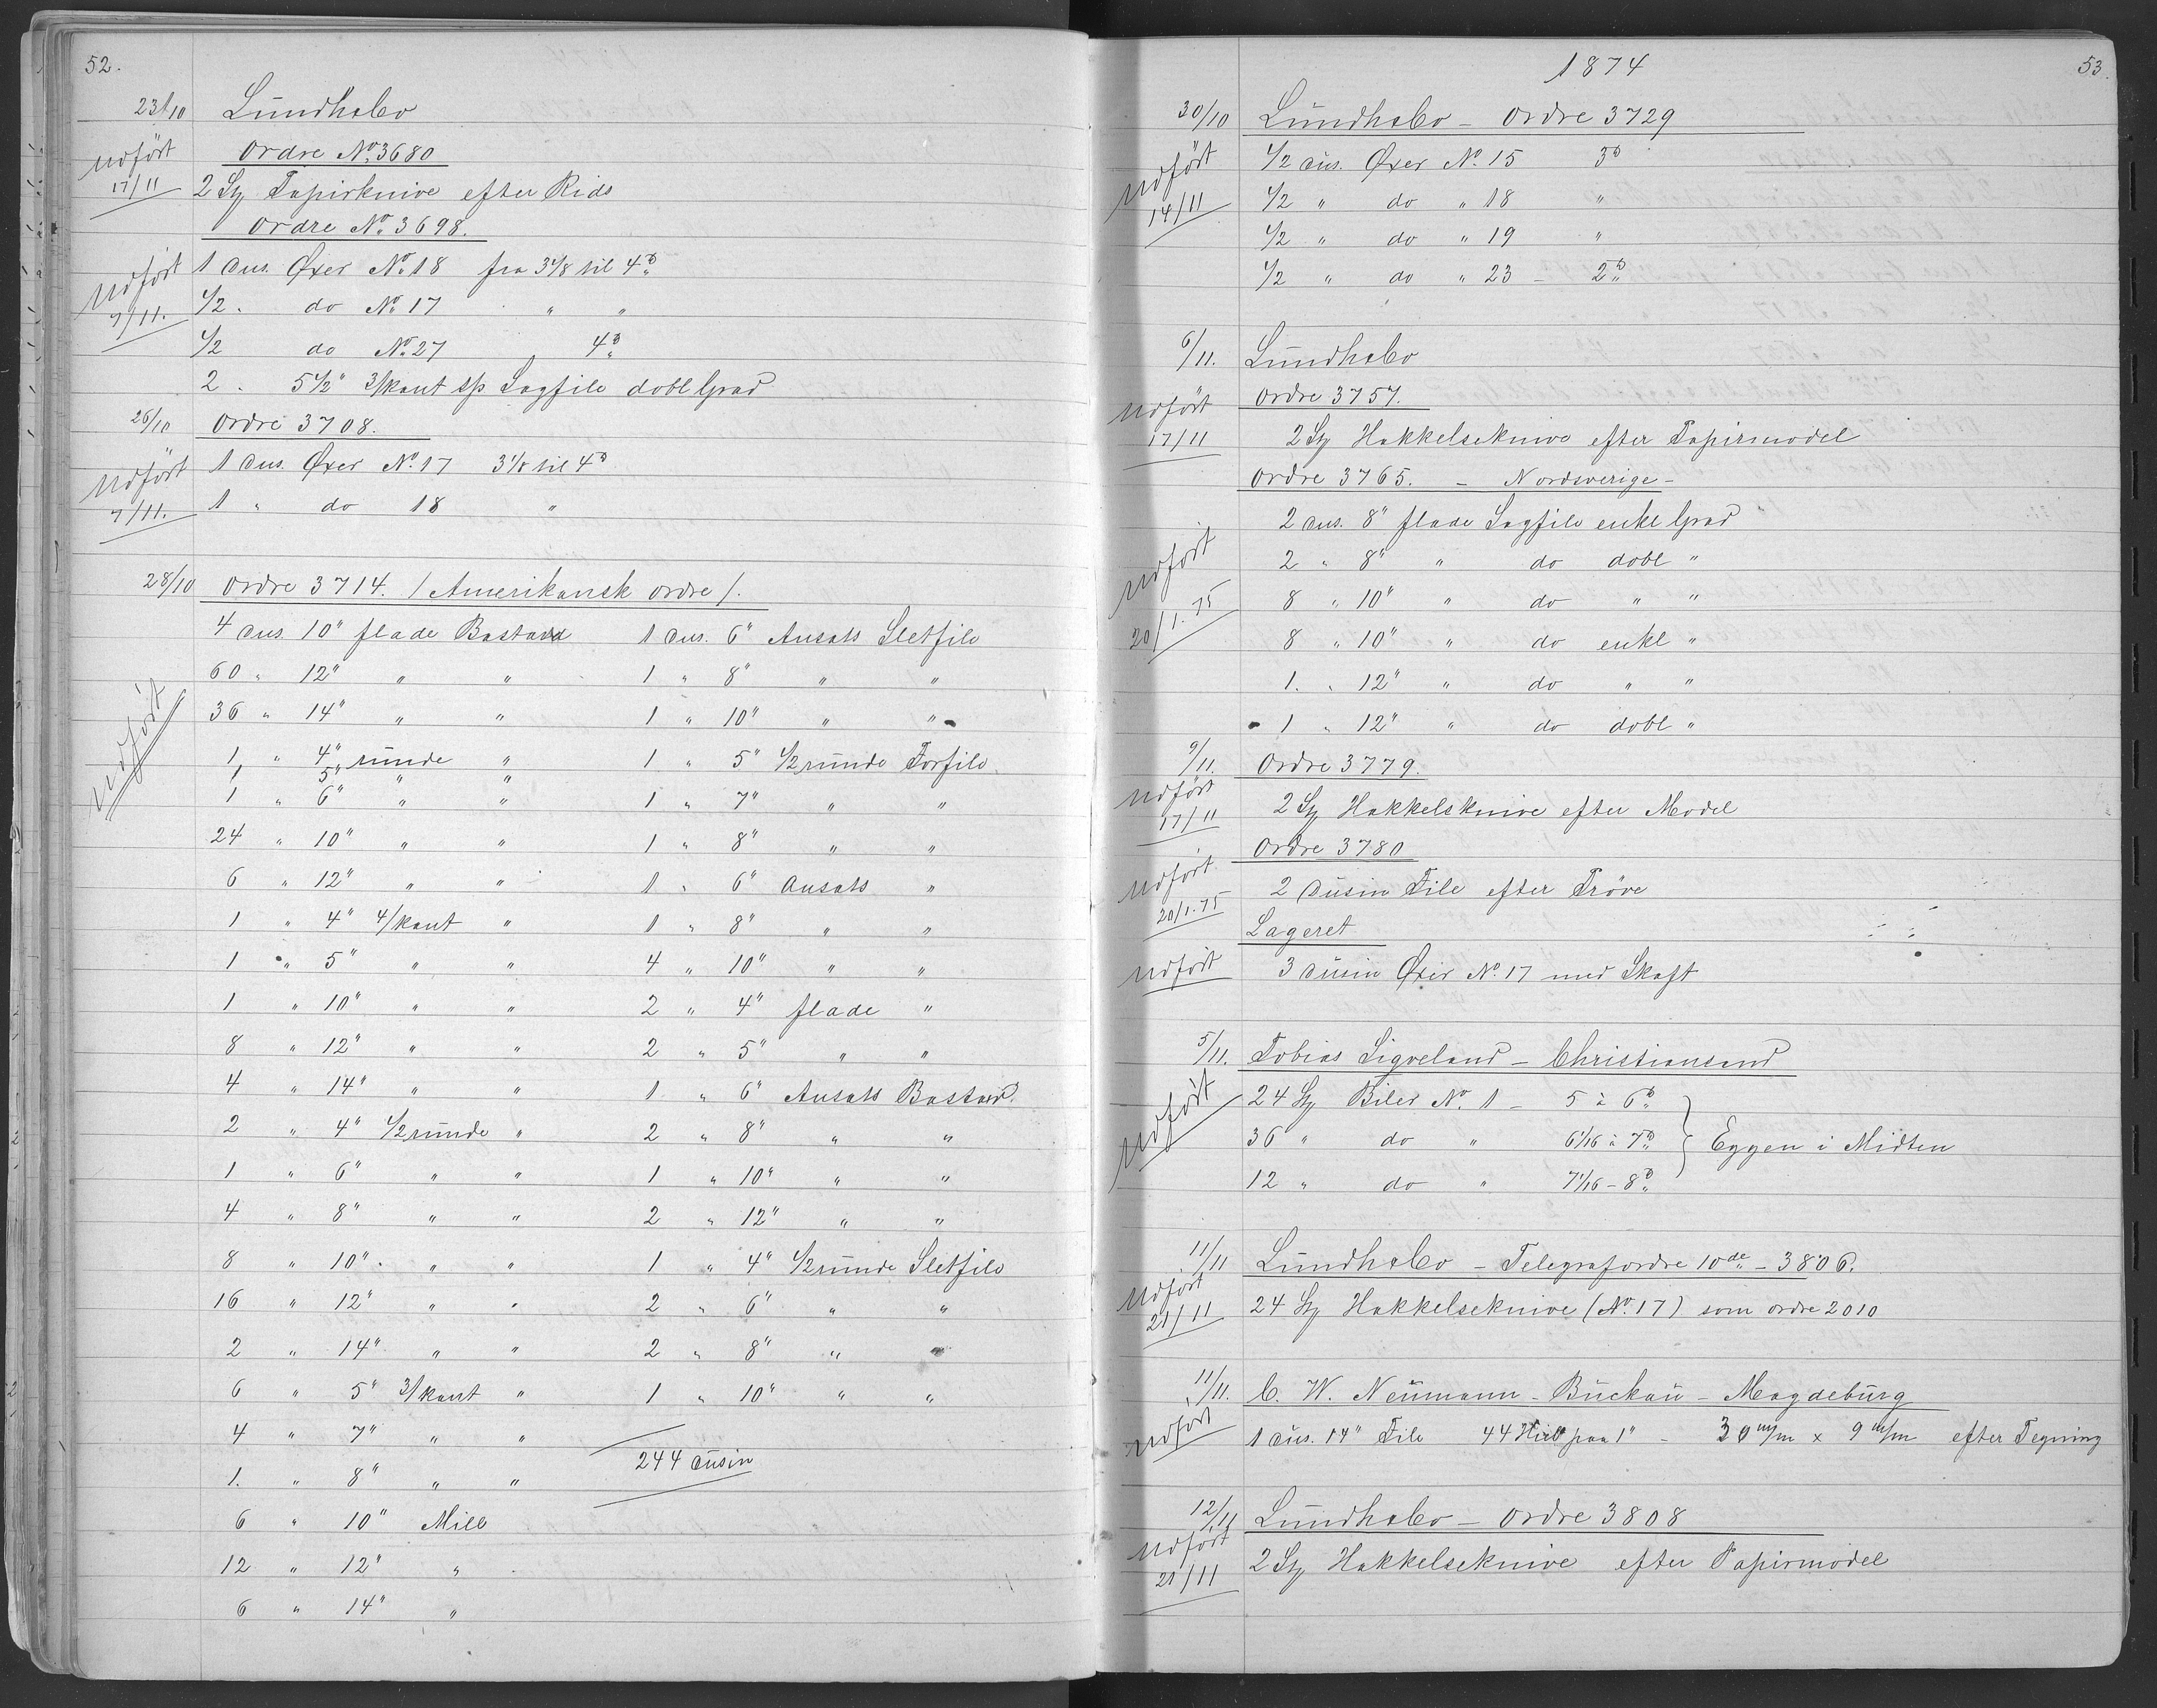 52.
23/10 Lundh & Co
Ordre No. 3680
udført 17/11 2 St Papirknive efter Rids
Ordre No. 3698.
udført 7/11. 1 dus. Øxer No. 18 fra 3 1/8 til 4 ℔
1/2 . do No. 17 " "
1/2 do No. 27 4 ℔
2 . 5 1/2" 3/kant sp Sagfile dobl Grad
26/10 Ordre 3708.
udført 7/11. 1 dus. Øxer No. 17 3 1/8 til 4 ℔
1 " do 18 "
28/10 Ordre 3714. / Amerikansk ordre /.
udført
4 dus. 10" flade Bastard
60 " 12" " "
36 " 14" " "
1 " 4" runde "
1 5" " "
1 " 6" " "
24 " 10" " "
6 " 12" " "
1 " 4" 4/kant "
1 " 5" " "
1 " 10" " "
8 " 12" " "
4 " 14" " "
2 " 4" 1/2 runde "
1 " 6" " "
4 " 8" " "
8 " 10" " "
16 " 12" " "
2 " 14" " "
6 " 5" 3/kant "
4 " 7" " "
1. " 8" " "
6 " 10" Mill
12 " 12" "
6 " 14" "
1 dus. 6" Ansats Sletfile
1 " 8" " "
1 " 10" " "
1 " 5" 1/2 runde Forfile
1 " 7" " "
1 " 8" " "
1 " 6" Ansats "
1 " 8" " "
4 " 10" " "
2 " 4" flade "
2 " 5" " "
1 " 6" Ansats Bastard
2 " 8" " "
1 " 10" " "
2 " 12" " "
1 " 4" 1/2 runde Sletfile
2 " 6" " "
2 " 8" " "
1 " 10" " "
244 dusin
1874 53.
30/10 Lundh & Co – Ordre 3729
udført 14/11 1/2 dus. Øxer No. 15 3 ℔
1/2 " do " 18 "
1/2 " do " 19 "
1/2 " do " 23 – 2 ℔
6/11. Lundh & Co
Ordre 3757.
udført 17/11 2 St Hakkelseknive efter Papirmodel
Ordre 3765. – Nordsverige –
udført 20/1.75 2 dus. 8" flade Sagfile enkl Grad
2 " 8" " do dobl "
8 " 10" " do " "
8 " 10" " do enkl "
1. " 12" " do " "
1 " 12" " do dobl "
9/11. Ordre 3779.
udført 17/11 2 St Hakkelsknive efter Model
Ordre 3780
udført 20/1.75 2 dusin File efter Prøve
Lageret
udført 3 dusin Øxer No. 17 med Skaft
5/11. Tobias Sigveland – Christiansand
udført 24 St Biler No. 1 – 5 à 6 ℔
36 " do " 6 1/16 à 7 ℔ } Eggen i Midten
12 " do " 7 1/16 – 8 ℔
11/11 Lundh & Co – Telegrafordre 10de – 3806.
udført 21/11 24 St Hakkelseknive (No. 17) som ordre 2010
11/11. C. W. Neumann – Buckau – Magdeburg
udført 1 dus. 14" File 44 Hid paa 1" – 30 m/m × 9 m/m efter Tegning
12/11 Lundh & Co – Ordre 3808
udført 21/11 2 St Hakkelseknive efter Papirmodel